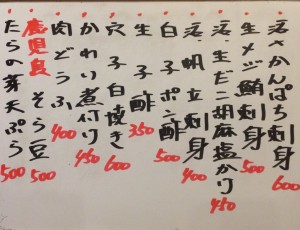 活かんぱち刺身 600
生メジ鮪刺身 500
活、生だこ胡麻塩かり 450
活帆立刺身 400
白子ポン酢 500
生子酢 350
穴子白焼き 600
かれい煮付け 450
肉どうふ 400
鹿児島 そら豆 500
たらの芽天ぷら 500